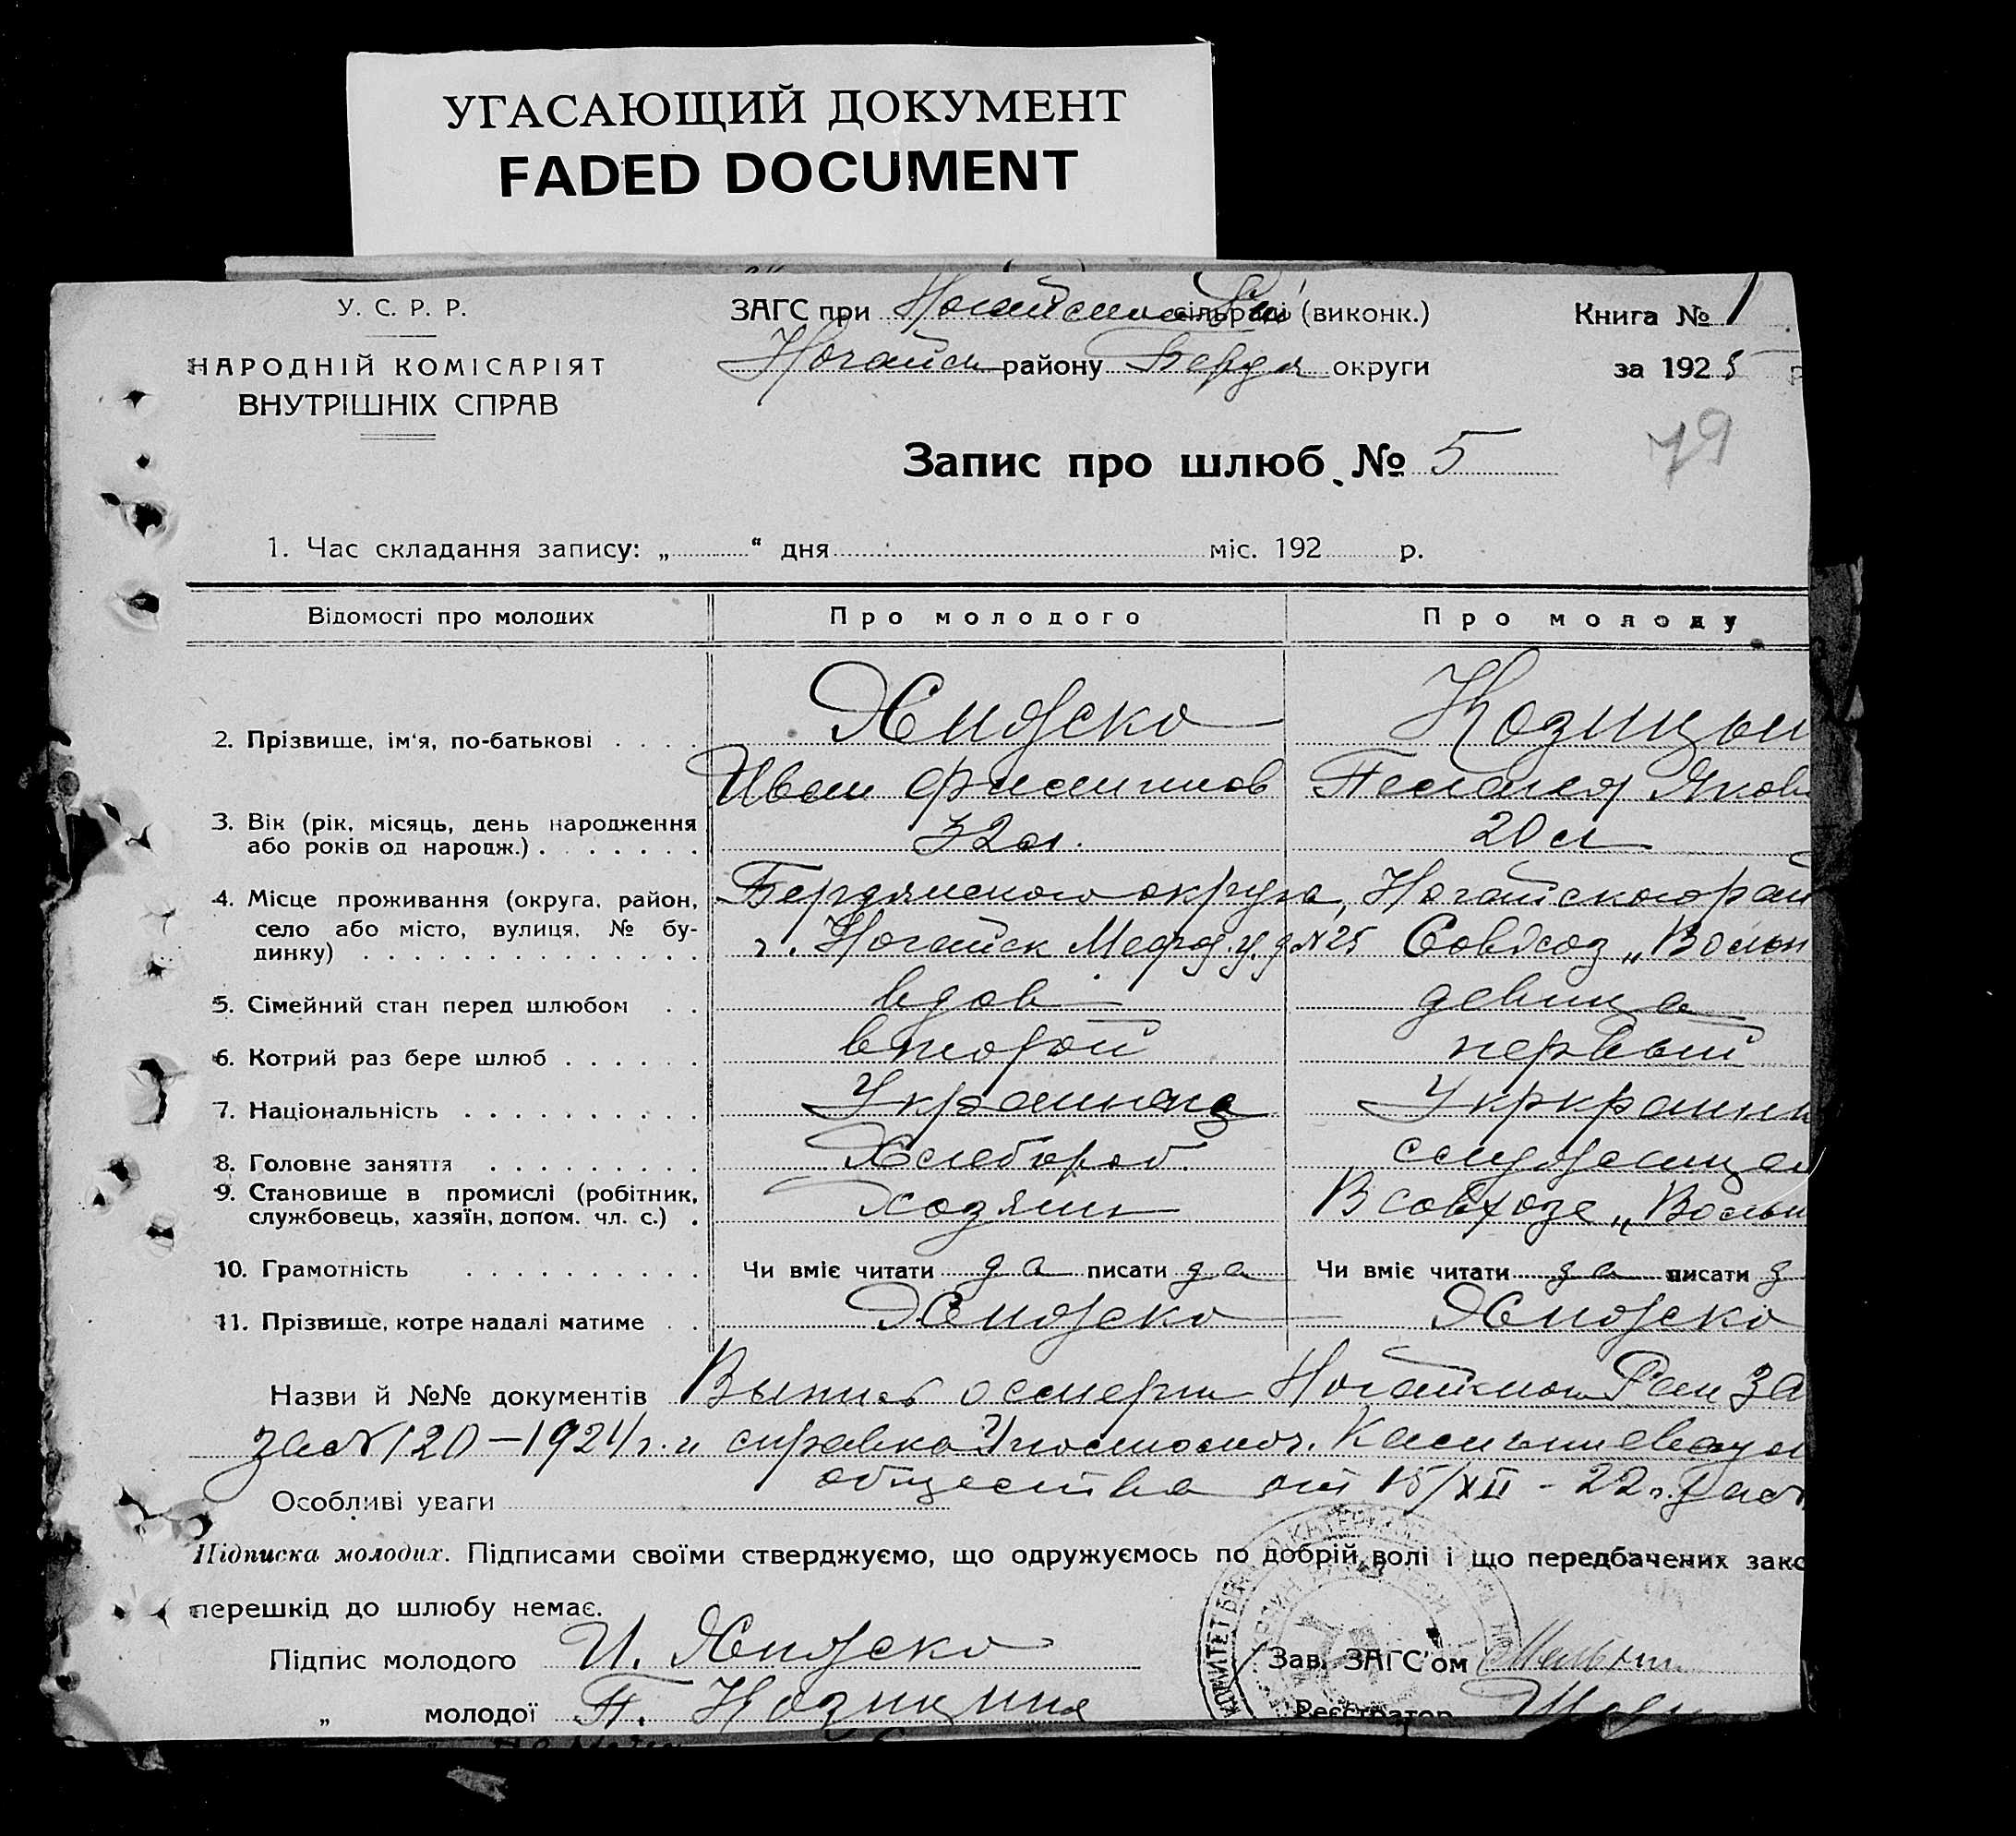 УГАСАЮЩИЙ ДОКУМЕНТ
FADED DOCUMENT
У. С. Р. Р.
НАРОДНІЙ КОМІСАРІЯТ
ВНУТРІШНІХ СПРАВ
ЗАГС при сільраді (виконк.)
Ногайск району Бердя округи
Книга № 1
за 1925 р
79
Запис про шлюб № 5
1. Час складання запису: „ “ дня міс. 192 р.
Відомості про молодих Про молодого Про молоду
2. Прізвище, ім'я, по-батькові . . . .
Иван Филиппов Пелагея Яковл
3. Вік (рік, місяць, день народження
або років од народж.) . . . . . . . 32 л. 20 л
4. Місце проживання (округа, район,
село або місто, вулиця, № бу-
динку) . . . . . . . . . . . . . .
Бердянского округа, Ногайского рай
г. Ногайск №25 Совхоз „Вольн
5. Сімейний стан перед шлюбом . . вдов девица
6. Котрий раз бере шлюб . . . . . . второй первый
7. Національність . . . . . . . . . . Украинец Укркраинк
8. Головне заняття . . . . . . . . . Хлебороб
9. Становище в промислі (робітник,
службовець, хазяїн, допом. чл. с.) . Хозяин В совхозе „Вольн
10. Грамотність . . . . . . . . . . Чи вміє читати да писати да Чи вміє читати да писати д
11. Прізвище, котре надалі матиме . .
Назви й №№ документів Выпись о смерти За
за №120 – 1924 г. и справка
общества от 15/XII - 22 г. за №
Особливі уваги
Підписка молодих. Підписами своїми стверджуємо, що одружуємось по добрій волі і що передбачених зако
перешкід до шлюбу немає.
Підпис молодого И.
Зав. ЗАГС'ом
„ молодої П.
Реєстратор